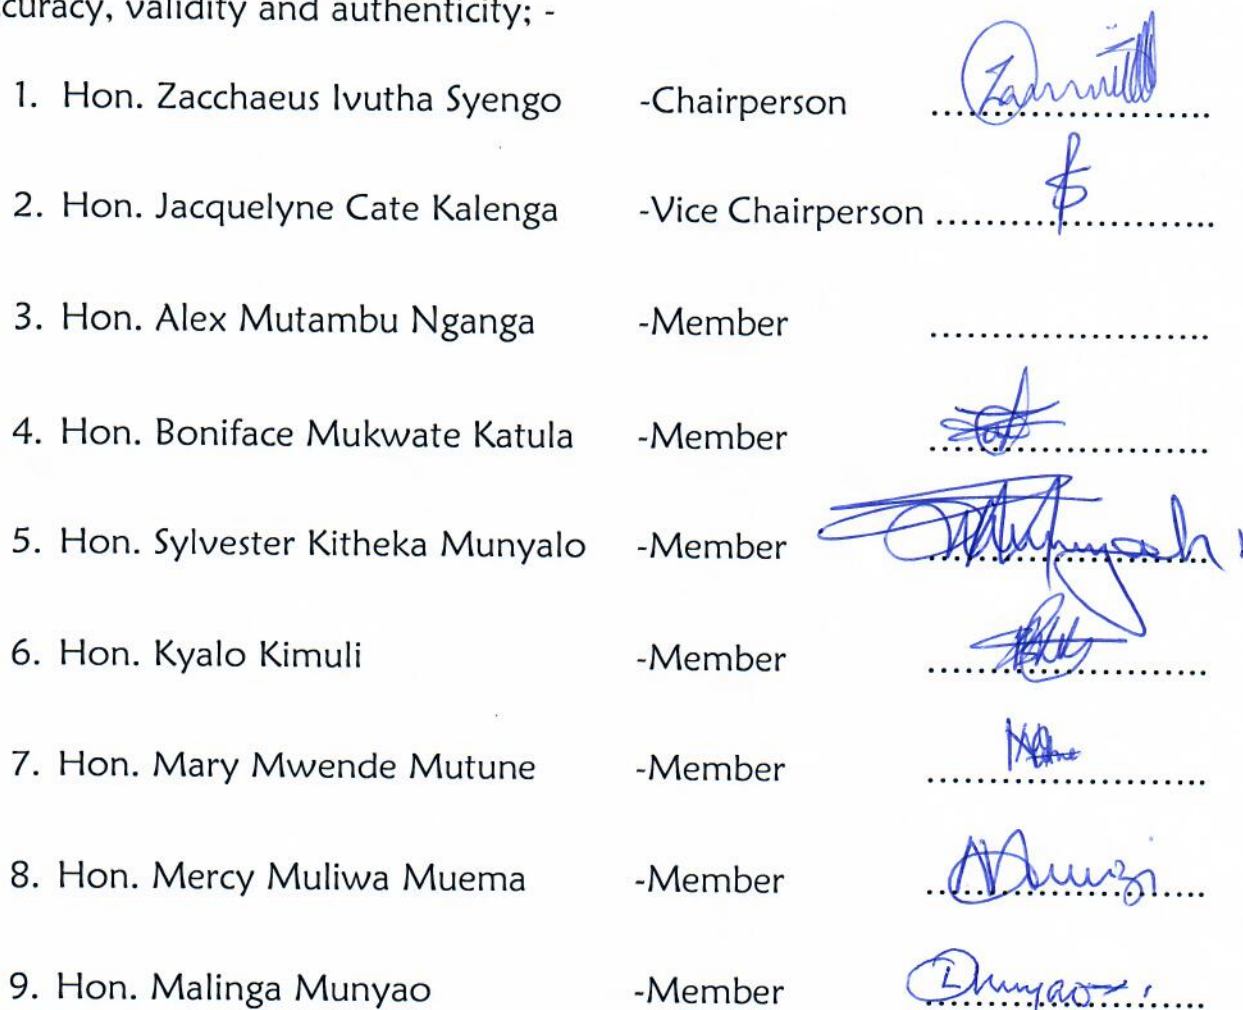 curacy, validity and authenticity; -
1. Hon. Zacchaeus Ivutha Syengo -Chairperson ........................
2. Hon. Jacquelyne Cate Kalenga -Vice Chairperson ........................
3. Hon. Alex Mutambu Nganga -Member ........................
4. Hon. Boniface Mukwate Katula -Member ........................
5. Hon. Sylvester Kitheka Munyalo -Member ........................
6. Hon. Kyalo Kimuli -Member ........................
7. Hon. Mary Mwende Mutune -Member ........................
8. Hon. Mercy Muliwa Muema -Member ........................
9. Hon. Malinga Munyao -Member ........................